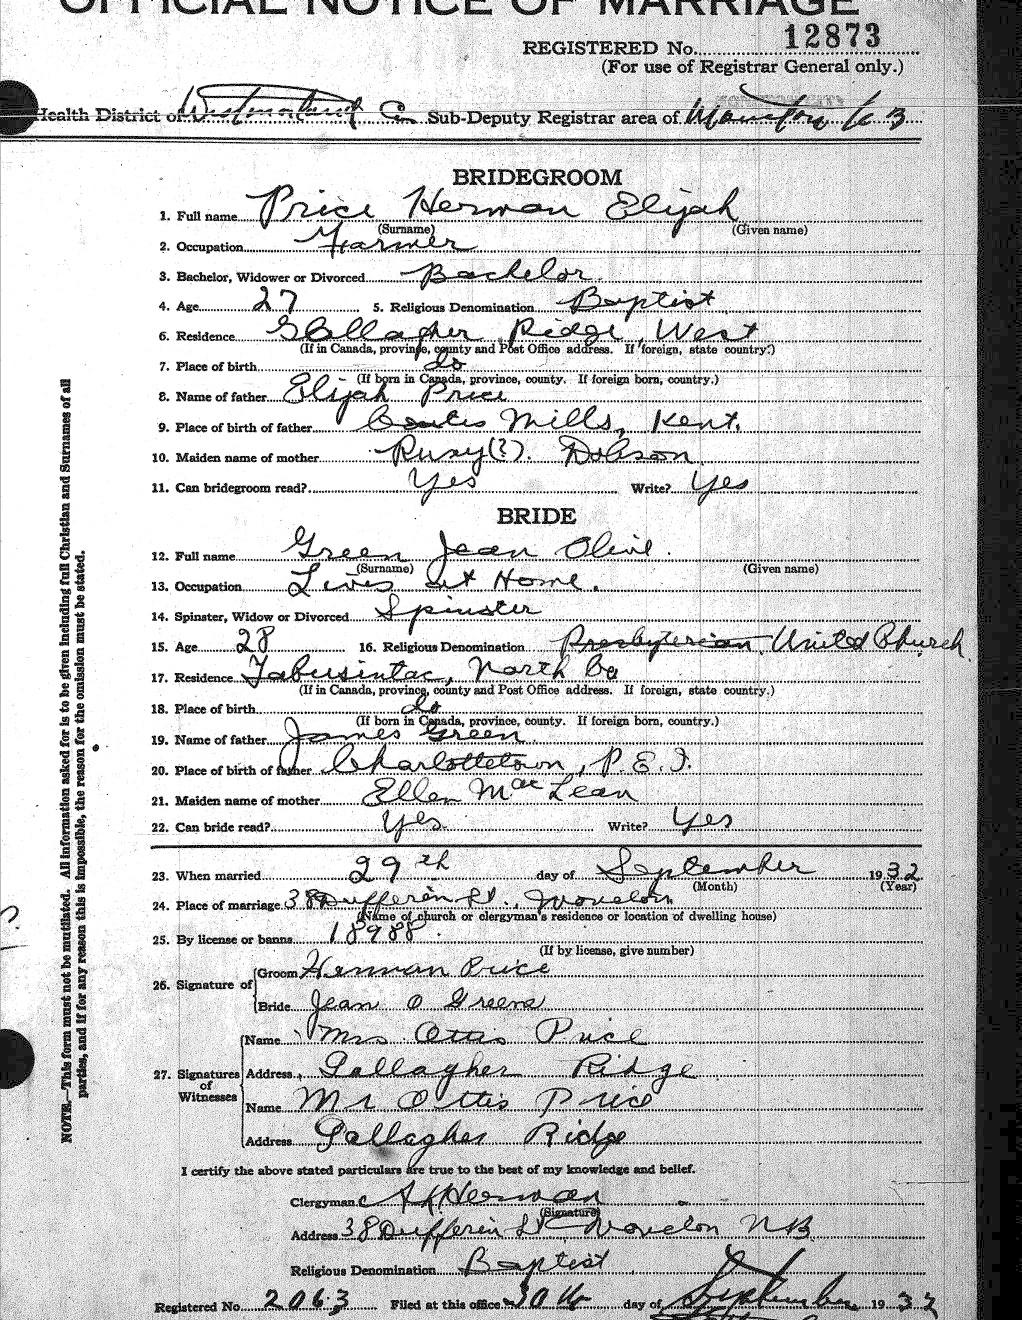 OFFICIAL NOTICE OF MARRIAGE
REGISTERED No. 12873
(For use of Registrar General only.)
Health District of Westmorland Co. Sub-Deputy Registrar area of Moncton N B
BRIDEGROOM
1. Full name Price Herman Elijah
(Surname) (Given name)
2. Occupation Farmer
3. Bachelor, Widower or Divorced Bachelor
4. Age 27 5. Religious Denomination Baptist
6. Residence Gallagher Ridge, West
(If in Canada, province, county and Post Office address. If foreign, state country.)
7. Place of birth do
(If born in Canada, province, county. If foreign born, country.)
8. Name of father Elijah Price
9. Place of birth of father Coates Mills, Kent.
10. Maiden name of mother Rusy(?). Dobson
11. Can bridegroom read? Yes Write? Yes
BRIDE
12. Full name Green Jean Olive.
(Surname) (Given name)
13. Occupation Lives at Home.
14. Spinster, Widow or Divorced Spinster
15. Age 28 16. Religious Denomination Presbyterian, United Church
17. Residence Tabusintac, North Co
(If in Canada, province, county and Post Office address. If foreign, state country.)
18. Place of birth do
(If born in Canada, province, county. If foreign born, country.)
19. Name of father James Green
20. Place of birth of father Charlottetown, P.E.I.
21. Maiden name of mother Ellen MacLean
22. Can bride read? Yes Write? Yes
23. When married 29th day of September 1932
(Month) (Year)
24. Place of marriage 38 Dufferin St., Moncton
(Name of church or clergyman's residence or location of dwelling house)
25. By license or banns 18988.
(If by license, give number)
26. Signature of Groom Herman Price
Bride Jean O Greene
27. Signatures of Witnesses
Name Mrs Ottis Price
Address Gallagher Ridge
Name Mr Ottis Price
Address Gallagher Ridge
I certify the above stated particulars are true to the best of my knowledge and belief.
Clergyman Herman
(Signature)
Address 38 Dufferin St Moncton N.B.
Religious Denomination Baptist
Registered No. 2063 Filed at this office 30th day of September 1932
NOTE.—This form must not be mutilated. All information asked for is to be given including full Christian and Surnames of all
parties, and if for any reason this is impossible, the reason for the omission must be stated.